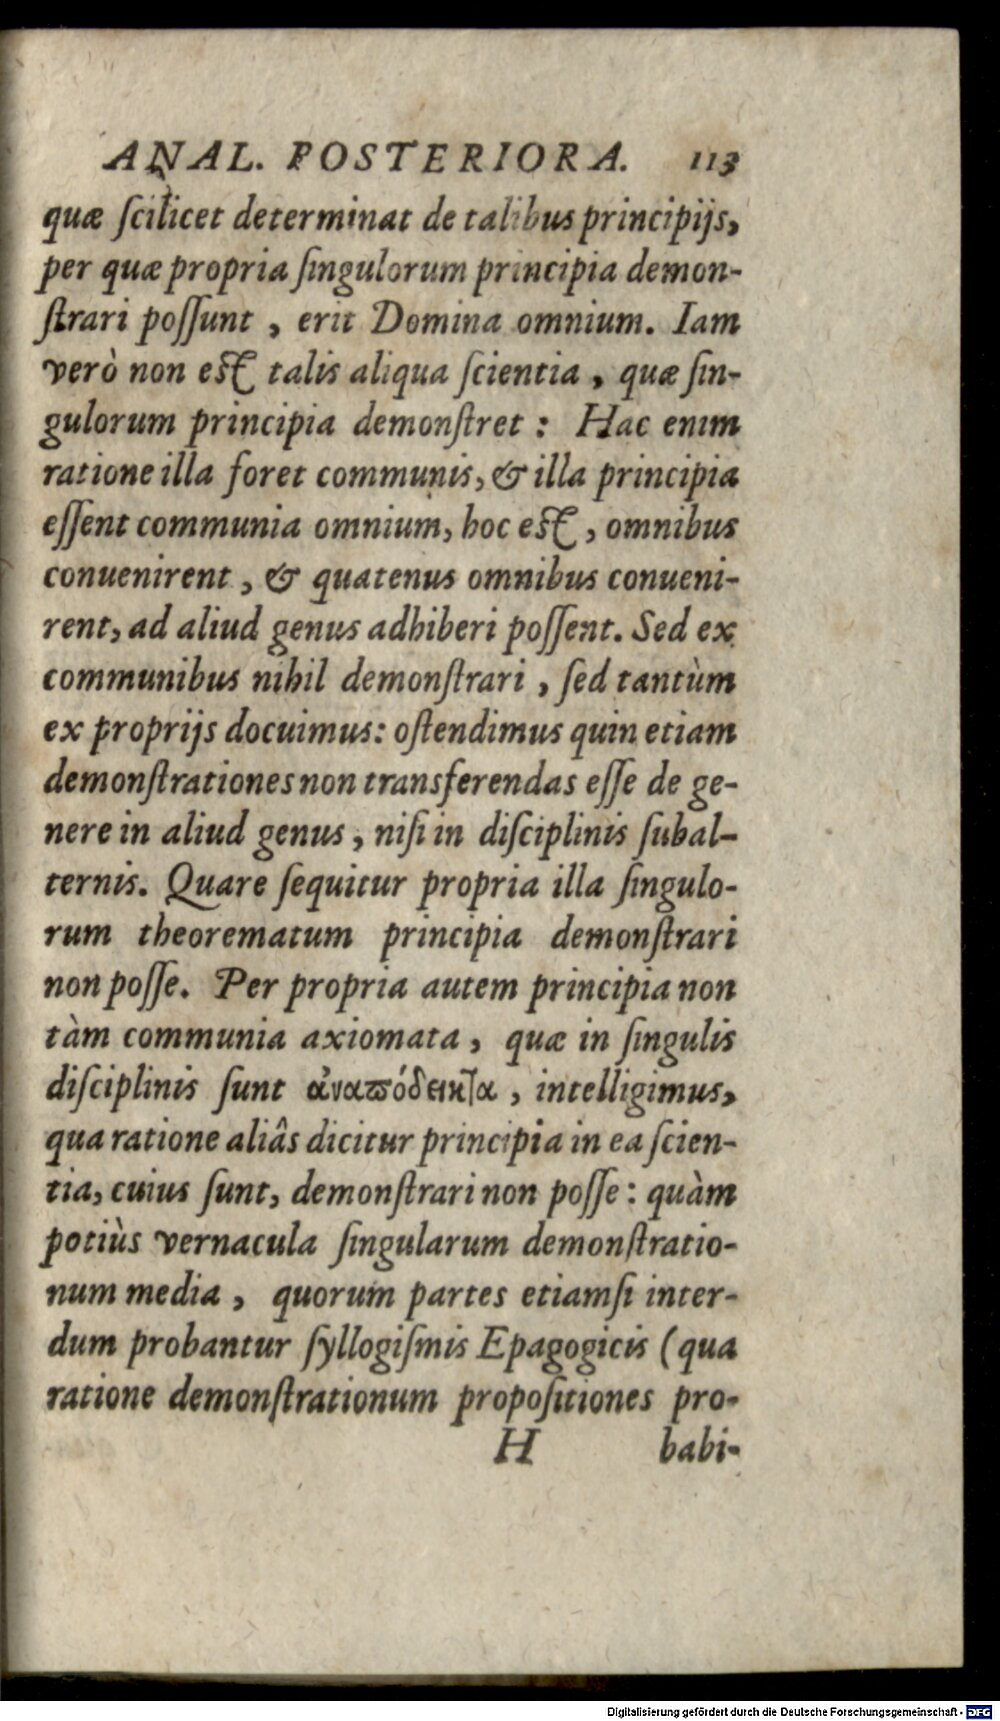 ANAL. POSTERIORA. 113
quæ ſcilicet determinat de talibus principijs,
per quæ propria ſingulorum principia demon-
ſtrari poſſunt , erit Domina omnium. Iam
verò non eſt talis aliqua ſcientia , quæ ſin-
gulorum principia demonſtret : Hac enim
ratione illa foret communis, & illa principia
eſſent communia omnium, hoc eſt , omnibus
conuenirent , & quatenus omnibus conueni-
rent, ad aliud genus adhiberi poſſent. Sed ex
communibus nihil demonſtrari , ſed tantùm
ex proprijs docuimus: oſtendimus quin etiam
demonſtrationes non transferendas eſſe de ge-
nere in aliud genus , niſi in diſciplinis ſubal-
ternis. Quare ſequitur propria illa ſingulo-
rum theorematum principia demonſtrari
non poſſe. Per propria autem principia non
tàm communia axiomata , quæ in ſingulis
diſciplinis ſunt ἀναπόδεικτα , intelligimus,
qua ratione aliâs dicitur principia in ea ſcien-
tia, cuius ſunt, demonſtrari non poſſe : quàm
potiùs vernacula ſingularum demonſtratio-
num media , quorum partes etiamſi inter-
dum probantur ſyllogiſmis Epagogicis (qua
ratione demonſtrationum propoſitiones pro-
H babi-
Digitalisierung gefördert durch die Deutsche Forschungsgemeinschaft - DFG